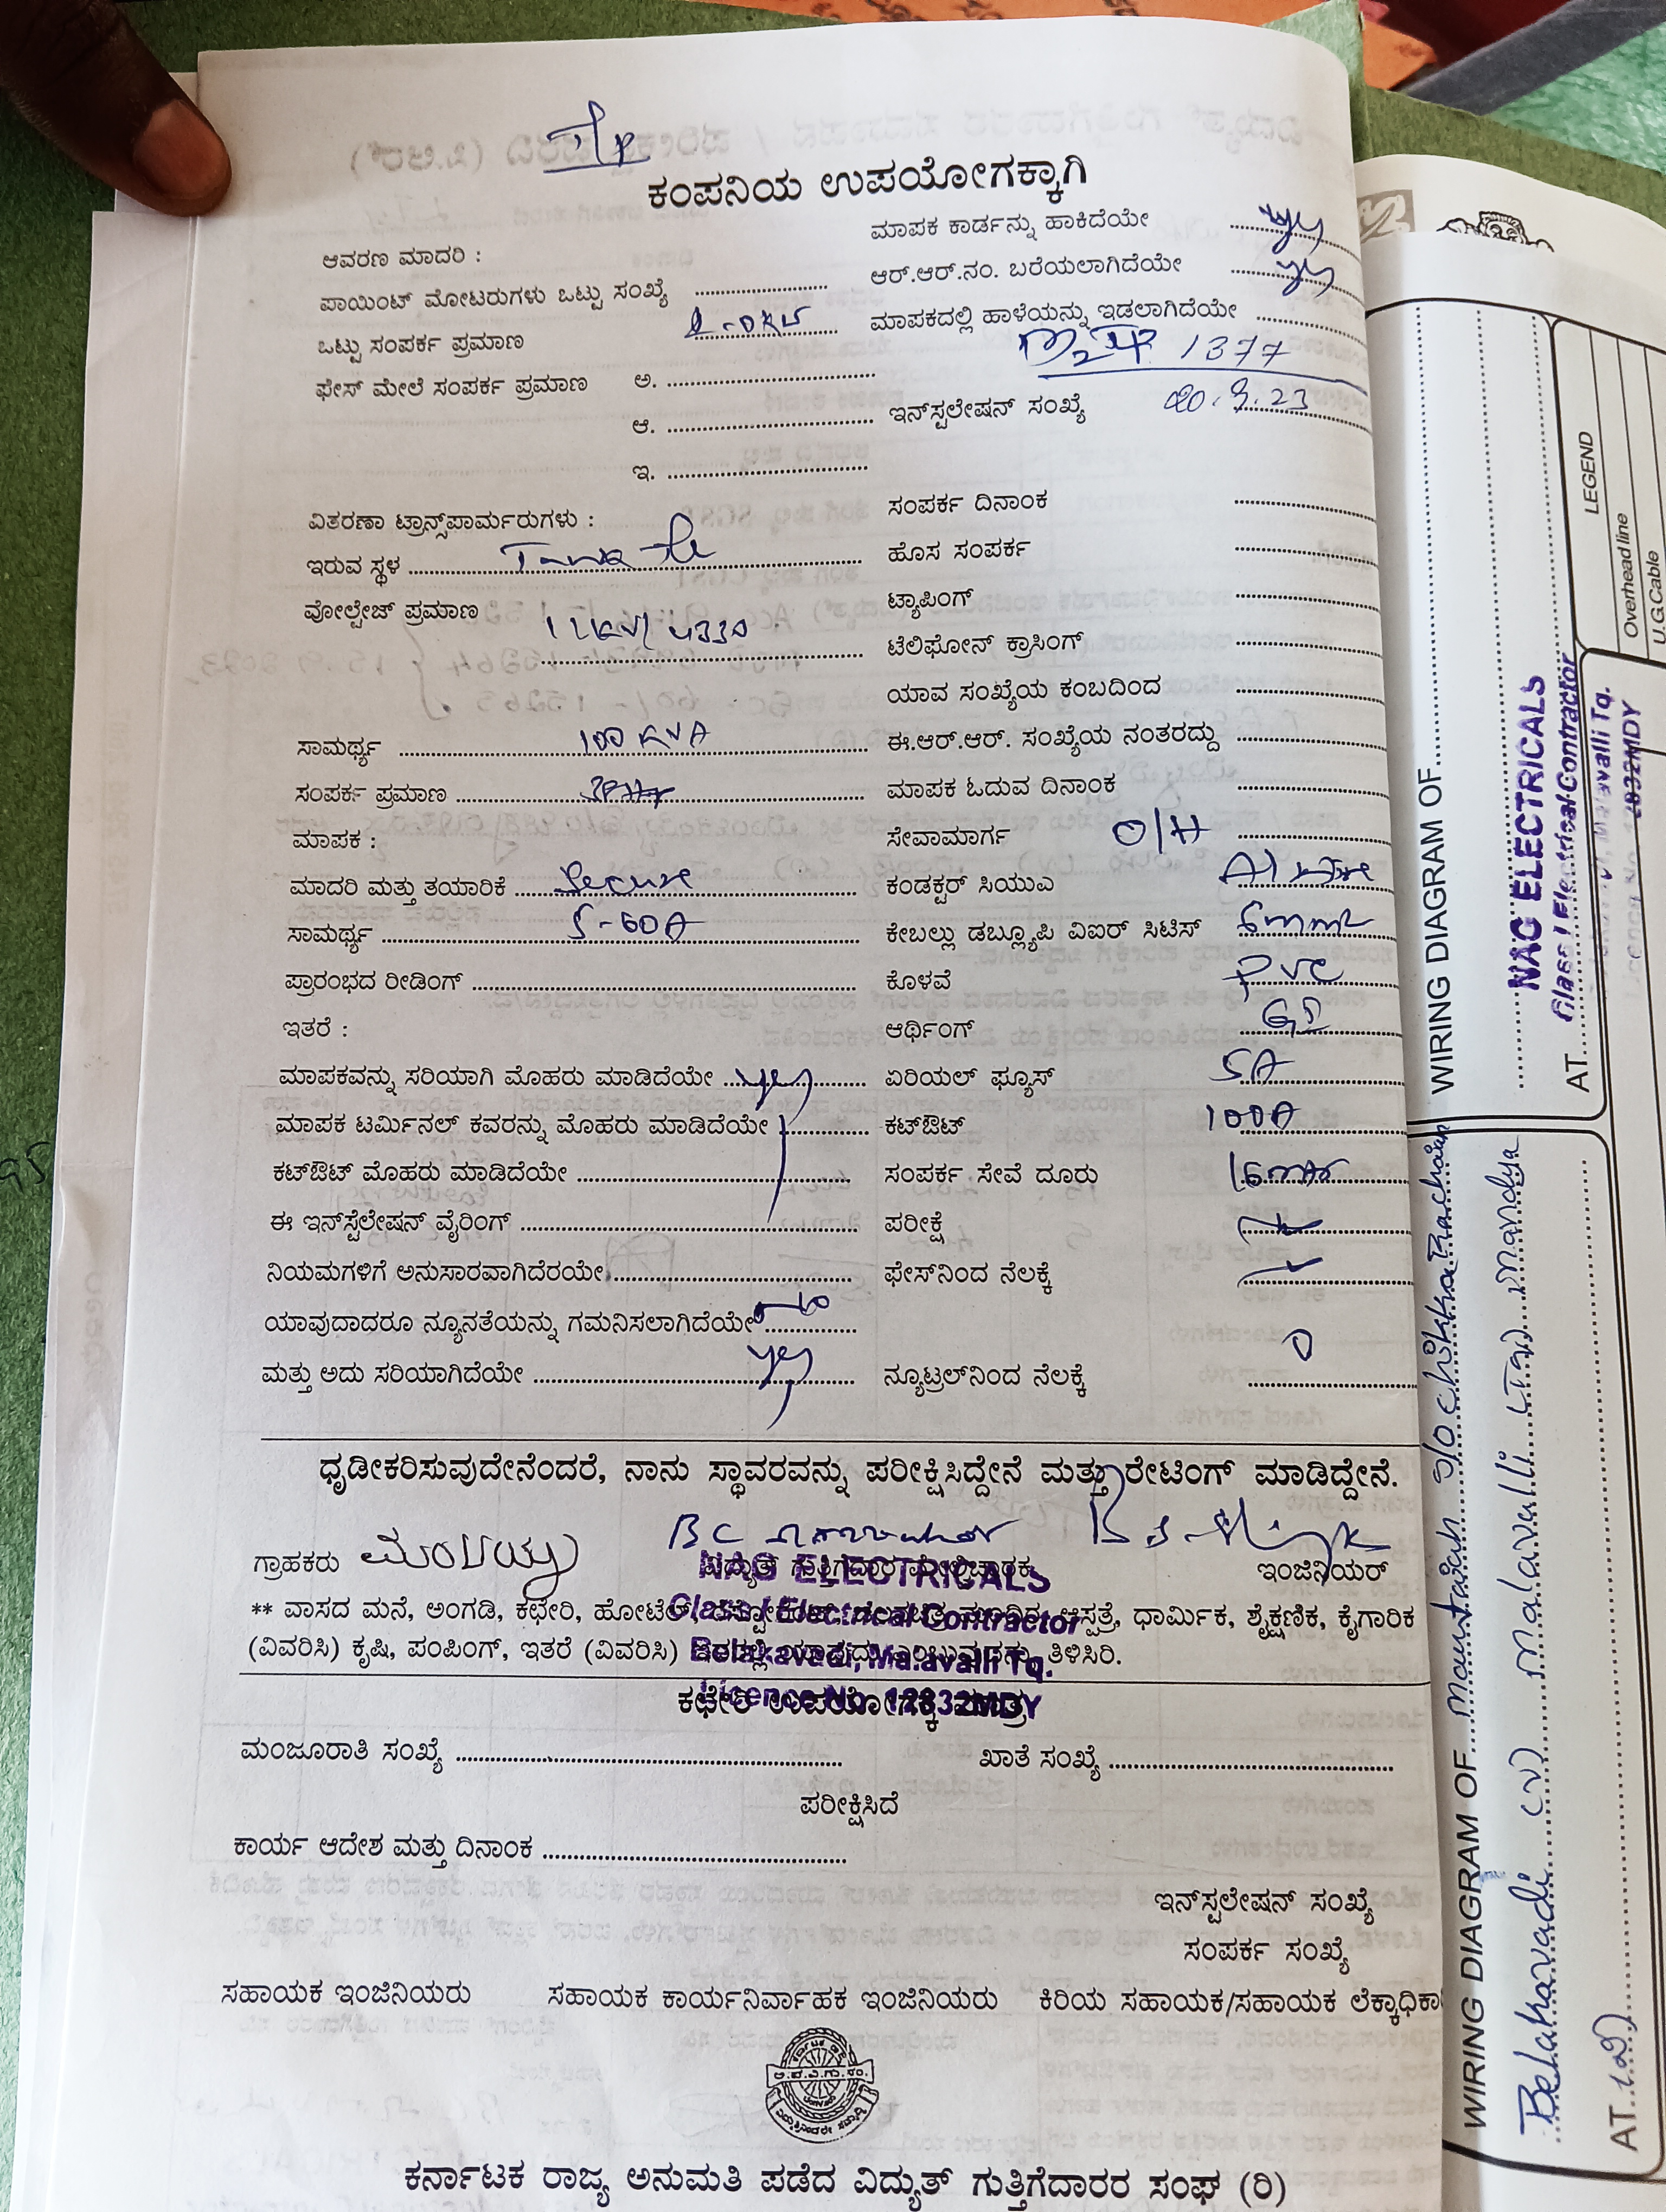 ಕಂಪನಿಯ ಉಪಯೋಗಕ್ಕಾಗಿ
ಆವರಣ ಮಾದರಿ :
ಪಾಯಿಂಟ್ ಮೋಟರುಗಳು ಒಟ್ಟು ಸಂಖ್ಯೆ
ಒಟ್ಟು ಸಂಪರ್ಕ ಪ್ರಮಾಣ
ಫೇಸ್ ಮೇಲೆ ಸಂಪರ್ಕ ಪ್ರಮಾಣ ಅ.
ಆ.
ಇ.
ವಿತರಣಾ ಟ್ರಾನ್ಸ್‌ಫಾರ್ಮರುಗಳು :
ಇರುವ ಸ್ಥಳ
ವೋಲ್ಟೇಜ್ ಪ್ರಮಾಣ
ಸಾಮರ್ಥ್ಯ 100 KVA
ಸಂಪರ್ಕ ಪ್ರಮಾಣ
ಮಾಪಕ :
ಮಾದರಿ ಮತ್ತು ತಯಾರಿಕೆ Secure
ಸಾಮರ್ಥ್ಯ 5-60A
ಪ್ರಾರಂಭದ ರೀಡಿಂಗ್
ಇತರೆ :
ಮಾಪಕವನ್ನು ಸರಿಯಾಗಿ ಮೊಹರು ಮಾಡಿದೆಯೇ yes
ಮಾಪಕ ಟರ್ಮಿನಲ್ ಕವರನ್ನು ಮೊಹರು ಮಾಡಿದೆಯೇ
ಕಟ್‌ಔಟ್ ಮೊಹರು ಮಾಡಿದೆಯೇ
ಈ ಇನ್‌ಸ್ಟೆಲೇಷನ್ ವೈರಿಂಗ್
ನಿಯಮಗಳಿಗೆ ಅನುಸಾರವಾಗಿದೆರಯೇ
ಯಾವುದಾದರೂ ನ್ಯೂನತೆಯನ್ನು ಗಮನಿಸಲಾಗಿದೆಯೇ
ಮತ್ತು ಅದು ಸರಿಯಾಗಿದೆಯೇ yes
ಮಾಪಕ ಕಾರ್ಡನ್ನು ಹಾಕಿದೆಯೇ yes
ಆರ್.ಆರ್.ನಂ. ಬರೆಯಲಾಗಿದೆಯೇ yes
ಮಾಪಕದಲ್ಲಿ ಹಾಳೆಯನ್ನು ಇಡಲಾಗಿದೆಯೇ
1377
ಇನ್‌ಸ್ಟಲೇಷನ್ ಸಂಖ್ಯೆ
ಸಂಪರ್ಕ ದಿನಾಂಕ
ಹೊಸ ಸಂಪರ್ಕ
ಟ್ಯಾಪಿಂಗ್
ಟೆಲಿಫೋನ್ ಕ್ರಾಸಿಂಗ್
ಯಾವ ಸಂಖ್ಯೆಯ ಕಂಬದಿಂದ
ಈ.ಆರ್.ಆರ್. ಸಂಖ್ಯೆಯ ನಂತರದ್ದು
ಮಾಪಕ ಓದುವ ದಿನಾಂಕ
ಸೇವಾಮಾರ್ಗ O/H
ಕಂಡಕ್ಟರ್ ಸಿಯುಎ Al wire
ಕೇಬಲ್ಲು ಡಬ್ಲ್ಯೂಪಿ ವಿಐರ್ ಸಿಟಿಸ್ 6mm2
ಕೊಳವೆ PVC
ಆರ್ಥಿಂಗ್ GI
ಏರಿಯಲ್ ಫ್ಯೂಸ್ 5A
ಕಟ್‌ಔಟ್ 100A
ಸಂಪರ್ಕ ಸೇವೆ ದೂರು
ಪರೀಕ್ಷೆ
ಫೇಸ್‌ನಿಂದ ನೆಲಕ್ಕೆ
ನ್ಯೂಟ್ರಲ್‌ನಿಂದ ನೆಲಕ್ಕೆ 0
ಧೃಡೀಕರಿಸುವುದೇನೆಂದರೆ, ನಾನು ಸ್ಥಾವರವನ್ನು ಪರೀಕ್ಷಿಸಿದ್ದೇನೆ ಮತ್ತು ರೇಟಿಂಗ್ ಮಾಡಿದ್ದೇನೆ.
ಗ್ರಾಹಕರು ಇಂಜಿನಿಯರ್
NAG ELECTRICALS
Class I Electrical Contractor
Belakavadi, Malavalli Tq.
Licence No. 12832MDY
** ವಾಸದ ಮನೆ, ಅಂಗಡಿ, ಕಛೇರಿ, ಹೋಟೆಲ್, ಆಸ್ಪತ್ರೆ, ಧಾರ್ಮಿಕ, ಶೈಕ್ಷಣಿಕ, ಕೈಗಾರಿಕ
(ವಿವರಿಸಿ) ಕೃಷಿ, ಪಂಪಿಂಗ್, ಇತರೆ (ವಿವರಿಸಿ) ತಿಳಿಸಿರಿ.
ಕಛೇರಿ ಉಪಯೋಗಕ್ಕೆ ಮಾತ್ರ
ಮಂಜೂರಾತಿ ಸಂಖ್ಯೆ ಖಾತೆ ಸಂಖ್ಯೆ
ಪರೀಕ್ಷಿಸಿದೆ
ಕಾರ್ಯ ಆದೇಶ ಮತ್ತು ದಿನಾಂಕ
ಇನ್‌ಸ್ಟಲೇಷನ್ ಸಂಖ್ಯೆ
ಸಂಪರ್ಕ ಸಂಖ್ಯೆ
ಸಹಾಯಕ ಇಂಜಿನಿಯರು ಸಹಾಯಕ ಕಾರ್ಯನಿರ್ವಾಹಕ ಇಂಜಿನಿಯರು ಕಿರಿಯ ಸಹಾಯಕ/ಸಹಾಯಕ ಲೆಕ್ಕಾಧಿಕಾ
ಕರ್ನಾಟಕ ರಾಜ್ಯ ಅನುಮತಿ ಪಡೆದ ವಿದ್ಯುತ್ ಗುತ್ತಿಗೆದಾರರ ಸಂಘ (ರಿ)
LEGEND
Overhead line
U.G.Cable
WIRING DIAGRAM OF
NAG ELECTRICALS
Class I Electrical Contractor
AT
WIRING DIAGRAM OF
Belakavadi (V) Malavalli Mandya
AT